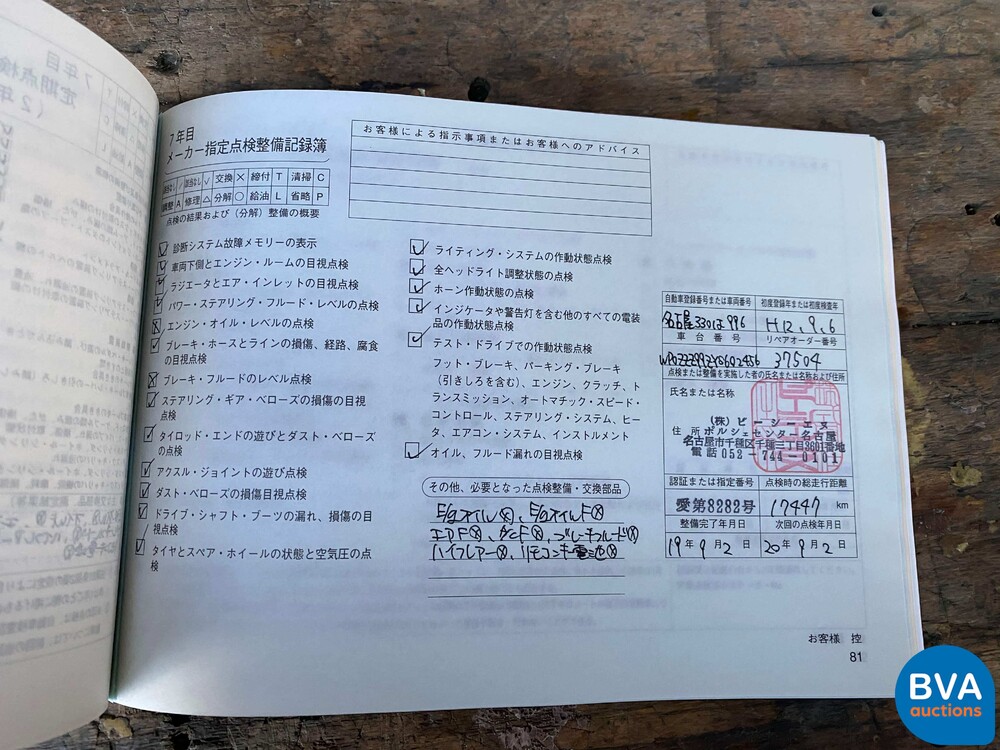 7年目
メーカー指定点検整備記録簿
交換 × 締付 T 清掃 C
調整 A 修理 △ 分解 ○ 給油 L 省略 P
点検の結果および（分解）整備の概要
診断システム故障メモリーの表示
車両下側とエンジン・ルームの目視点検
ラジエータとエア・インレットの目視点検
パワー・ステアリング・フルード・レベルの点検
エンジン・オイル・レベルの点検
ブレーキ・ホースとラインの損傷、経路、腐食
の目視点検
ブレーキ・フルードのレベル点検
ステアリング・ギア・ベローズの損傷の目視
点検
タイロッド・エンドの遊びとダスト・ベローズ
の点検
アクスル・ジョイントの遊び点検
ダスト・ベローズの損傷目視点検
ドライブ・シャフト・ブーツの漏れ、損傷の目
視点検
タイヤとスペア・ホイールの状態と空気圧の点
検
お客様による指示事項またはお客様へのアドバイス
ライティング・システムの作動状態点検
全ヘッドライト調整状態の点検
ホーン作動状態の点検
インジケータや警告灯を含む他のすべての電装
品の作動状態点検
テスト・ドライブでの作動状態点検
フット・ブレーキ、パーキング・ブレーキ
（引きしろを含む）、エンジン、クラッチ、ト
ランスミッション、オートマチック・スピード・
コントロール、ステアリング・システム、ヒー
タ、エアコン・システム、インストルメント
オイル、フルード漏れの目視点検
その他、必要となった点検整備・交換部品
E/gオイル ×、E/gオイルF ×
エアF ×、A/CF ×、ブレーキフルード ×
ハイフレアー ×、リモコンキー電池 ×
自動車登録番号または車両番号 初度登録年または初度検査年
名古屋330は996 H12.9.6
車台番号 リペアオーダー番号
WP0ZZZ99ZYS602456 37504
点検または整備を実施した者の氏名または名称および住所
氏名または名称
（株）ピーシーエヌ
住所 ポルシェセンター名古屋
名古屋市千種区千種三丁目3601番地
電話 052-744-0101
認証または指定番号 点検時の総走行距離
愛第8282号 17447 km
整備完了年月日 次回の点検年月日
19年9月2日 20年9月2日
お客様 控
81
BVA
auctions